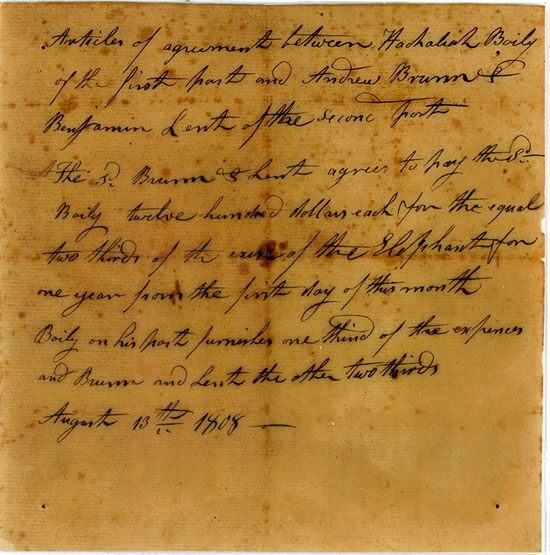 Articles of agreement between Hachaliah Baily
of the first part and Andrew Brunn &
Benjamin Lent of the second part
The Sd. Brunn & Lent agrees to pay the Sd
Baily twelve hundred dollars each for the equal
two thirds of the of the Elephant for
one year from the first day of this month
Baily on his part furnishes one third of the expences
and Brunn and Lent the other two thirds
August 13th 1808 —